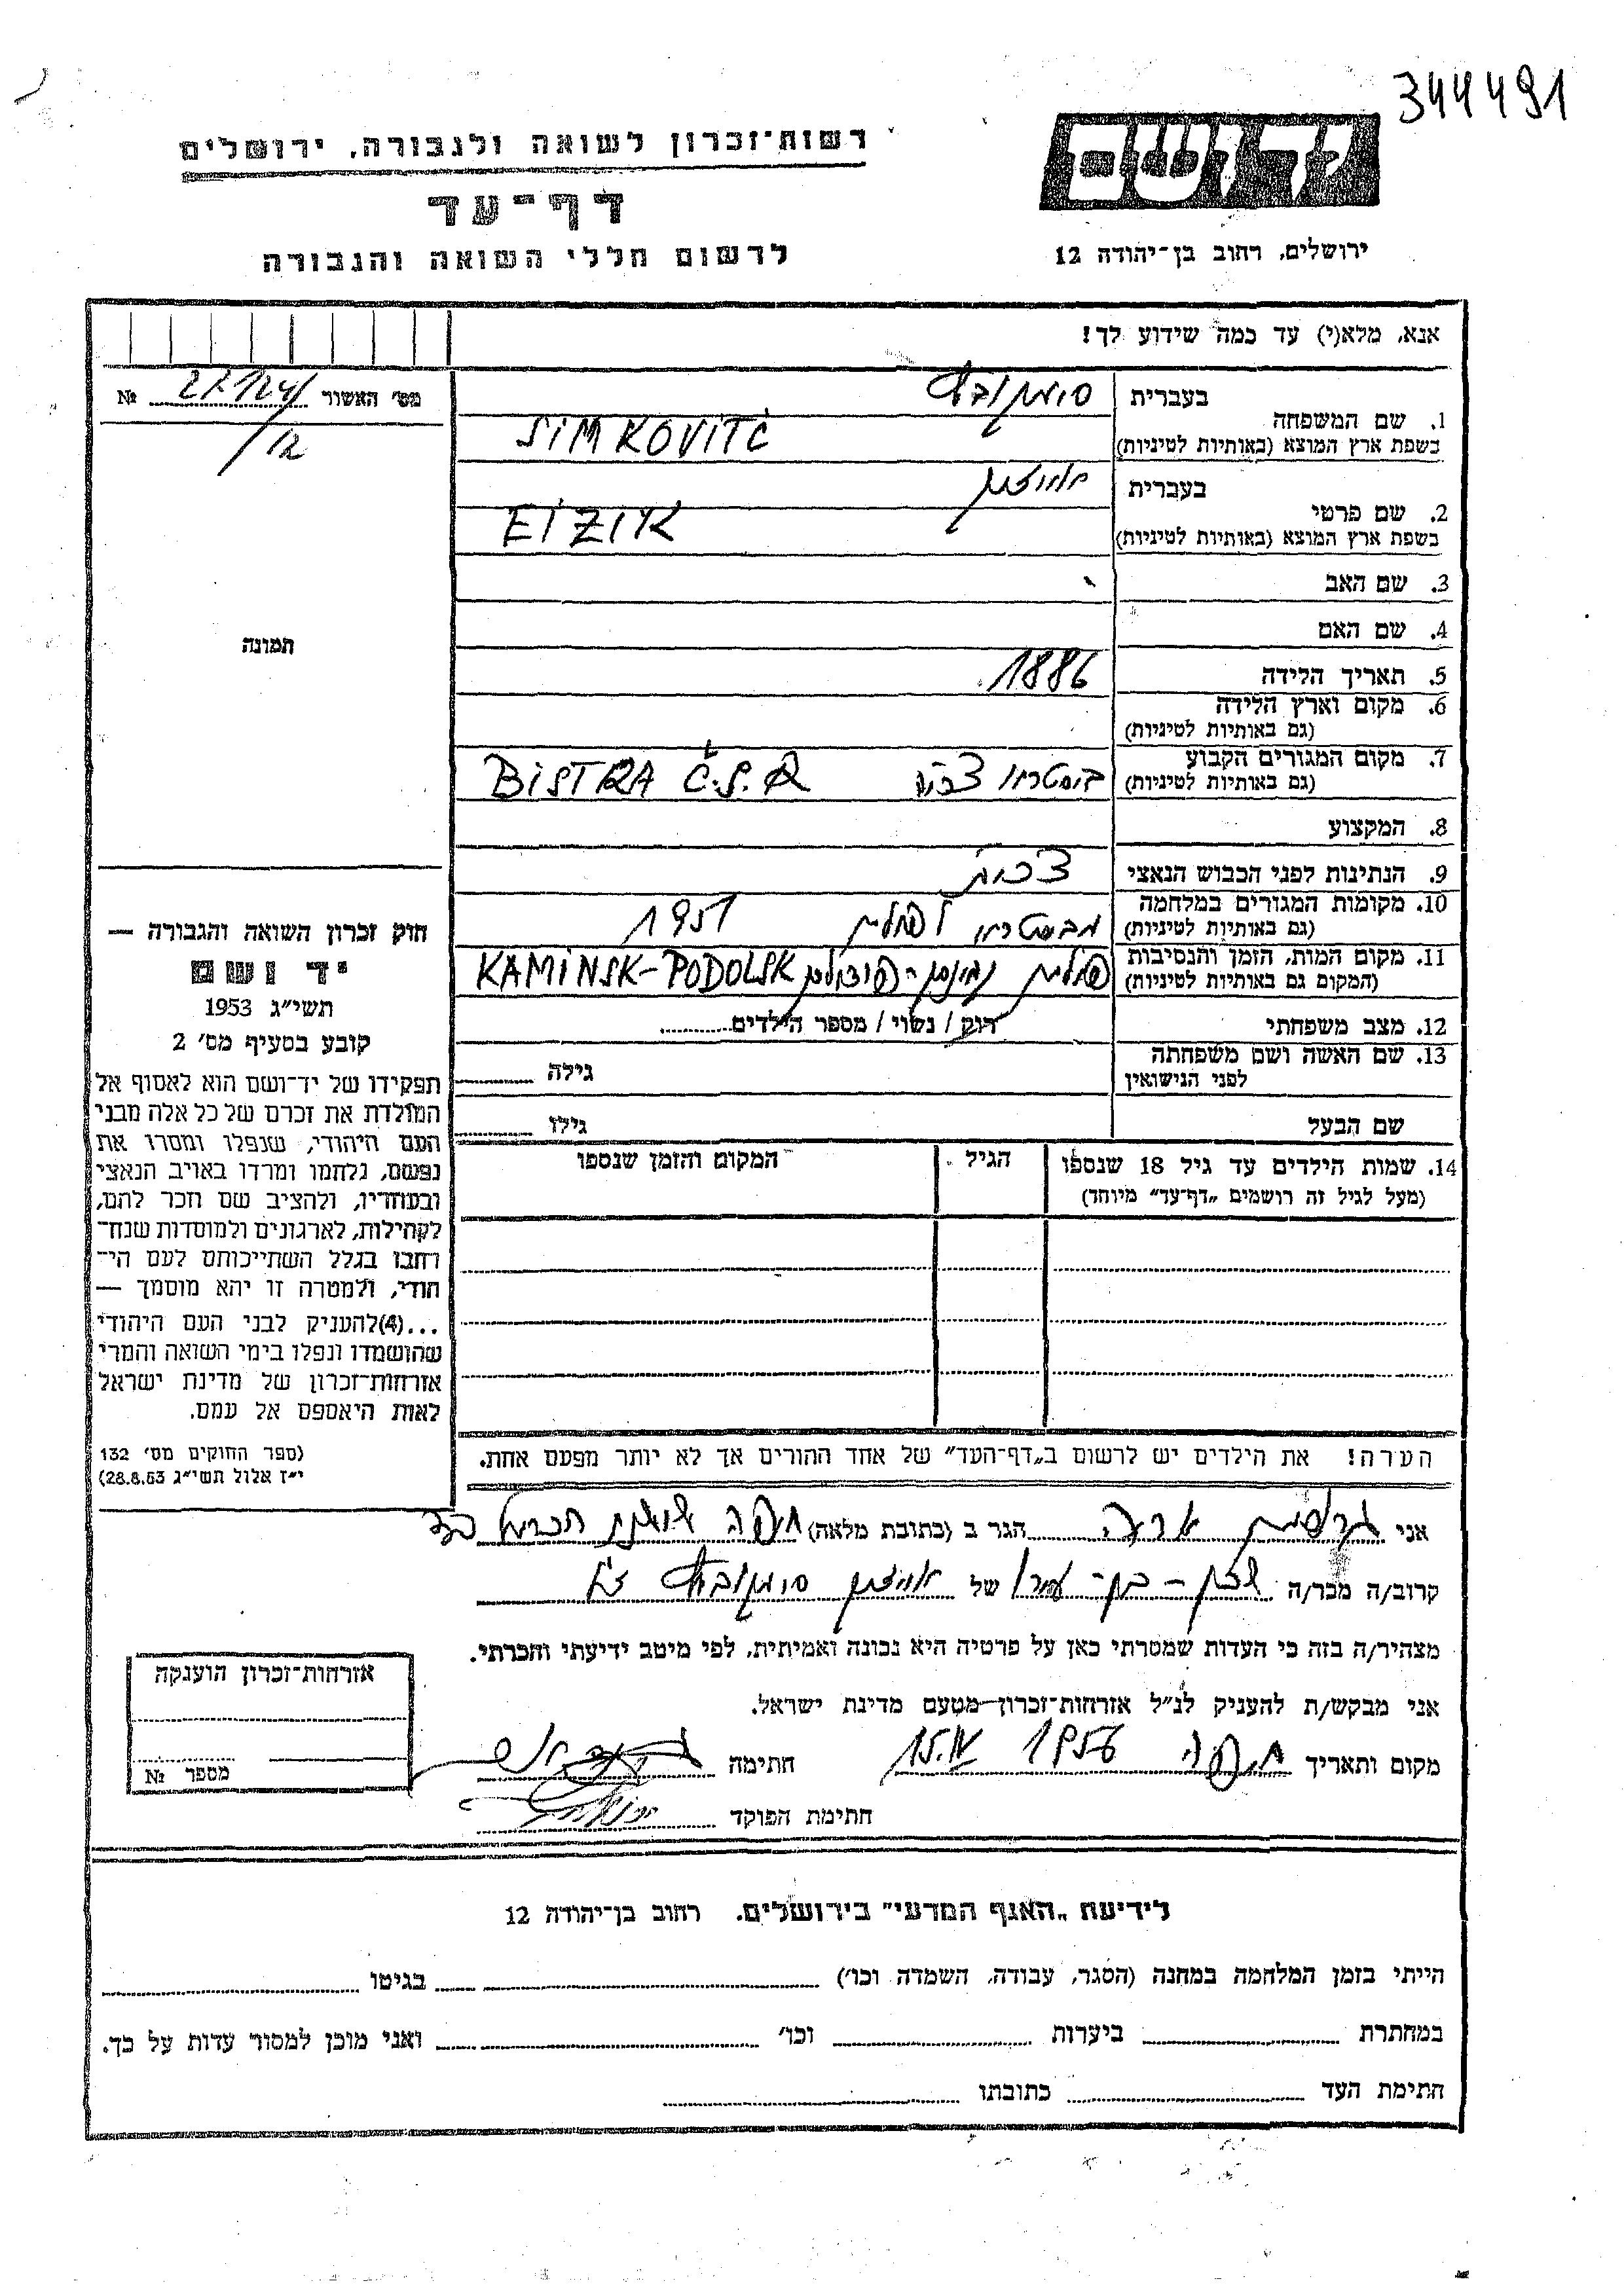 344491
רשות־זכרון לשואה ולגבורה, ירושלים
דף־עד
לרשום חללי השואה והגבורה
יד ושם
ירושלים, רחוב בן־יהודה 12
אנא, מלא(י) עד כמה שידוע לך!
מס' האשור 27124/ №
/12
תמונה
חוק זכרון השואה והגבורה —
יד ושם
תשי״ג 1953
קובע בסעיף מס' 2
תפקידו של יד־ושם הוא לאסוף אל
המולדת את זכרם של כל אלה מבני
העם היהודי, שנפלו ומסרו את
נפשם, נלחמו ומרדו באויב הנאצי
ובעוזריו, ולהציב שם וזכר להם,
לקהילות, לארגונים ולמוסדות שנח־
רבו בגלל השתייכותם לעם הי־
הודי, ולמטרה זו יהא מוסמך —
...(4)להעניק לבני העם היהודי
שהושמדו ונפלו בימי השואה והמרי
אזרחות־זכרון של מדינת ישראל
לאות היאספם אל עמם.
(ספר החוקים מס' 132
י״ז אלול תשי״ג 28.8.53)
1. שם המשפחה בעברית סימקוביץ
בשפת ארץ המוצא (באותיות לטיניות) SIMKOVITČ
2. שם פרטי בעברית אייזיק
בשפת ארץ המוצא (באותיות לטיניות) EIZIK
3. שם האב
4. שם האם
5. תאריך הלידה 1886
6. מקום וארץ הלידה
(גם באותיות לטיניות)
7. מקום המגורים הקבוע ביסטרה צ'כיה BISTRA Č.S.R
(גם באותיות לטיניות)
8. המקצוע
9. הנתינות לפני הכבוש הנאצי צ'כית
10. מקומות המגורים במלחמה מביסטרה לפולין
(גם באותיות לטיניות)
11. מקום המות, הזמן והנסיבות פולין קמינסק-פודולסק KAMINSK-PODOLSK
(המקום גם באותיות לטיניות)
12. מצב משפחתי רוק / נשוי / מספר הילדים
13. שם האשה ושם משפחתה גילה
לפני הנישואין
שם הבעל גילו
14. שמות הילדים עד גיל 18 שנספו הגיל המקום והזמן שנספו
(מעל לגיל זה רושמים „דף־עד״ מיוחד)
הערה! את הילדים יש לרשום ב„דף־העד״ של אחד ההורים אך לא יותר מפעם אחת.
אני אריה הגר ב (כתובת מלאה) חיפה הכרמל
קרוב/ה מכר/ה שכן - בן־ של אייזיק סימקוביץ ז״ל
מצהיר/ה בזה כי העדות שמסרתי כאן על פרטיה היא נכונה ואמיתית, לפי מיטב ידיעתי והכרתי.
אני מבקש/ת להעניק לנ״ל אזרחות־זכרון מטעם מדינת ישראל.
מקום ותאריך חיפה 1956 15.IV חתימה
חתימת הפוקד
אזרחות־זכרון הוענקה
מספר №
לידיעת „האגף המדעי״ בירושלים. רחוב בן־יהודה 12
הייתי בזמן המלחמה במחנה (הסגר, עבודה, השמדה וכו') בגיטו
במחתרת ביערות וכו' ואני מוכן למסור עדות על כך.
חתימת העד כתובתו